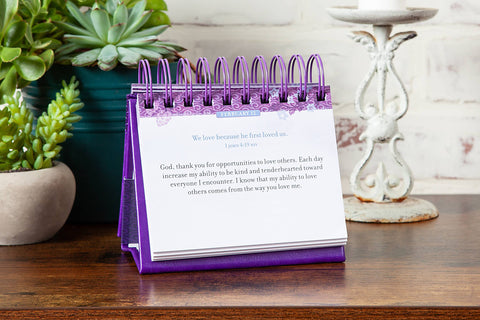 We love because he first loved us.
1 JOHN 4:19 NIV
God, thank you for opportunities to love others. Each day
increase my ability to be kind and tenderhearted toward
everyone I encounter. I know that my ability to love
others comes from the way you love me.